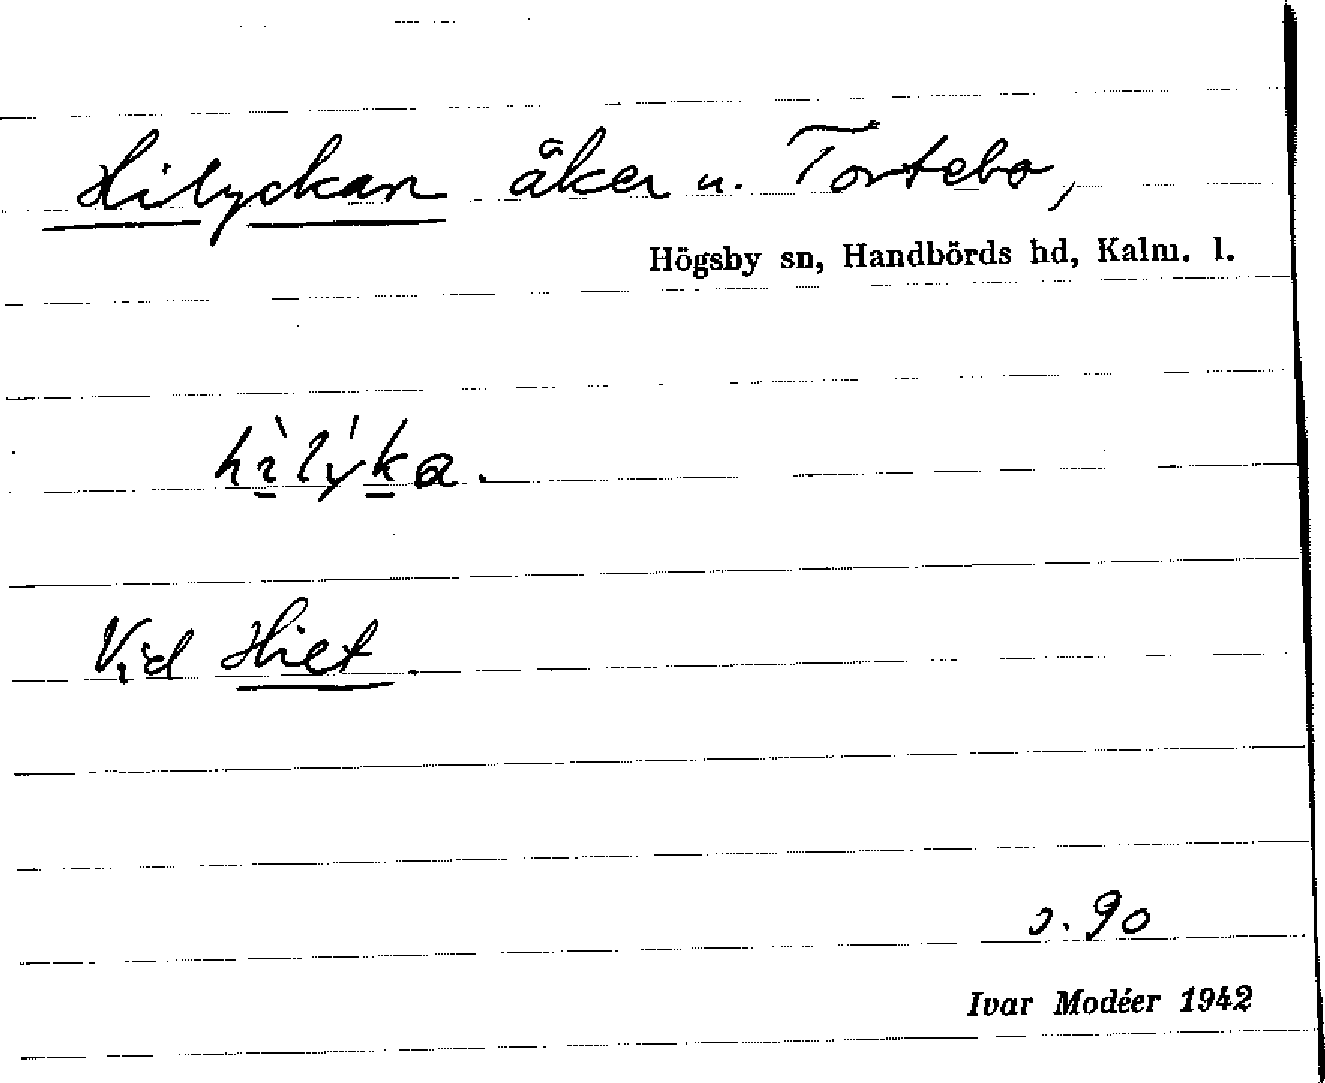 Hilyckan åker u. Tortebo,
Högsby sn, Handbörds hd, Kalm. l.
hìlýka.
Vid Hiet.
s. 90
Ivar Modéer 1942